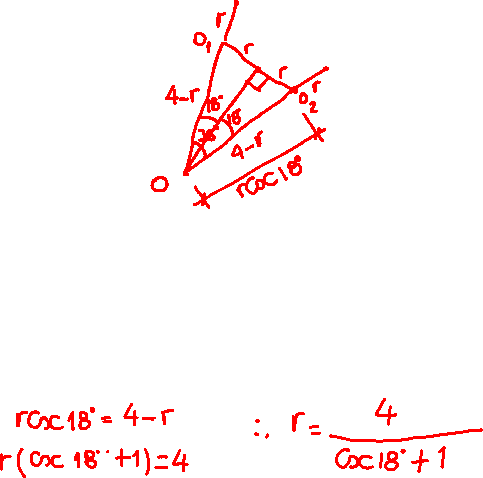 r
O₁ r
r
4-r 18° O₂ r
18
36°
4-r
O
r csc 18°
r csc 18° = 4-r
r(csc 18° +1)=4
∴ r = 4 / (csc 18° + 1)